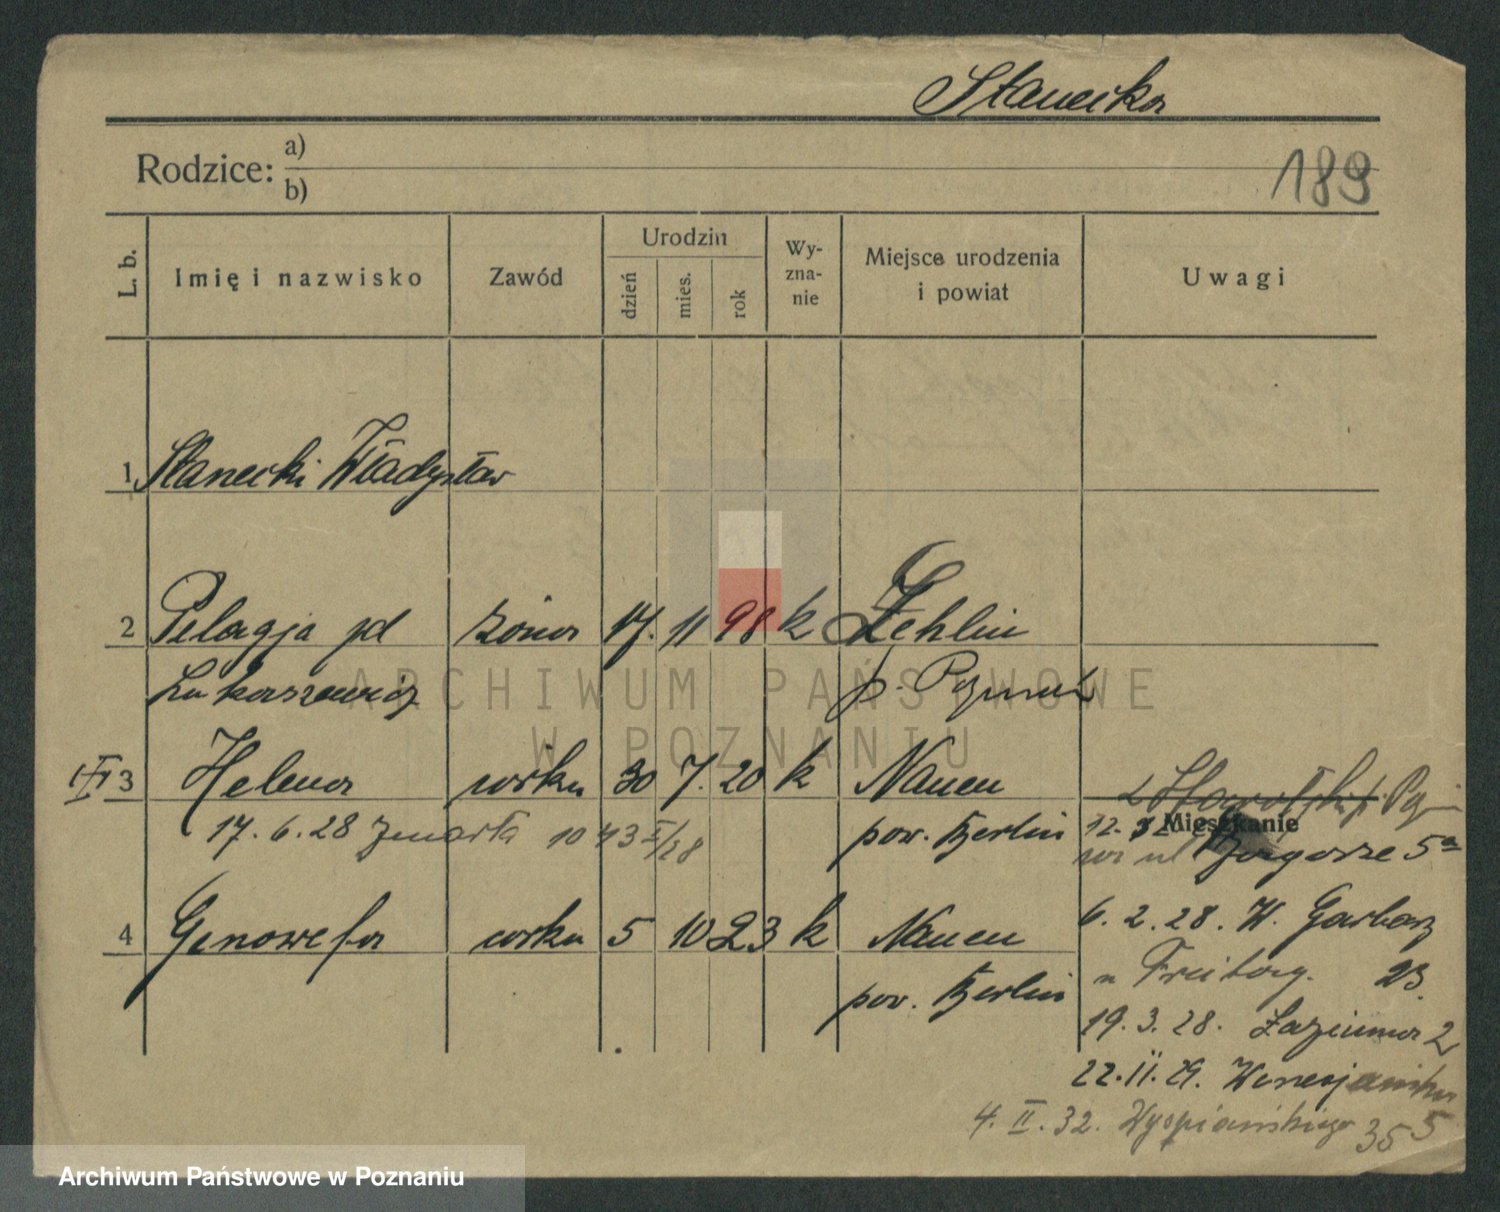 Stanecka
Rodzice: a)
b)
189
L. b.
Imię i nazwisko
Zawód
Urodzin
dzień
mies.
rok
Wy-
zna-
nie
Miejsce urodzenia
i powiat
Uwagi
1 Stanecki Władysław
2 Pelagja pd żona 17. 11 98 k Zehlin
Łukaszewicz p.
3 Helena córka 30 7. 20 k Nauen
17. 6. 28 zmarła pow. Berlin
Mieszkanie
12.
Zagórze 5a
4 Genowefa córka 5 10 23 k Nauen
pow. Berlin
6. 2. 28. W. Garbary
u Freitag. 23.
19. 3. 28. Łazienna 2
22. 11. 29. Wenecjańska
5
4. II. 32. Wyspiańskiego 35
ARCHIWUM PAŃSTWOWE
W POZNANIU
Archiwum Państwowe w Poznaniu